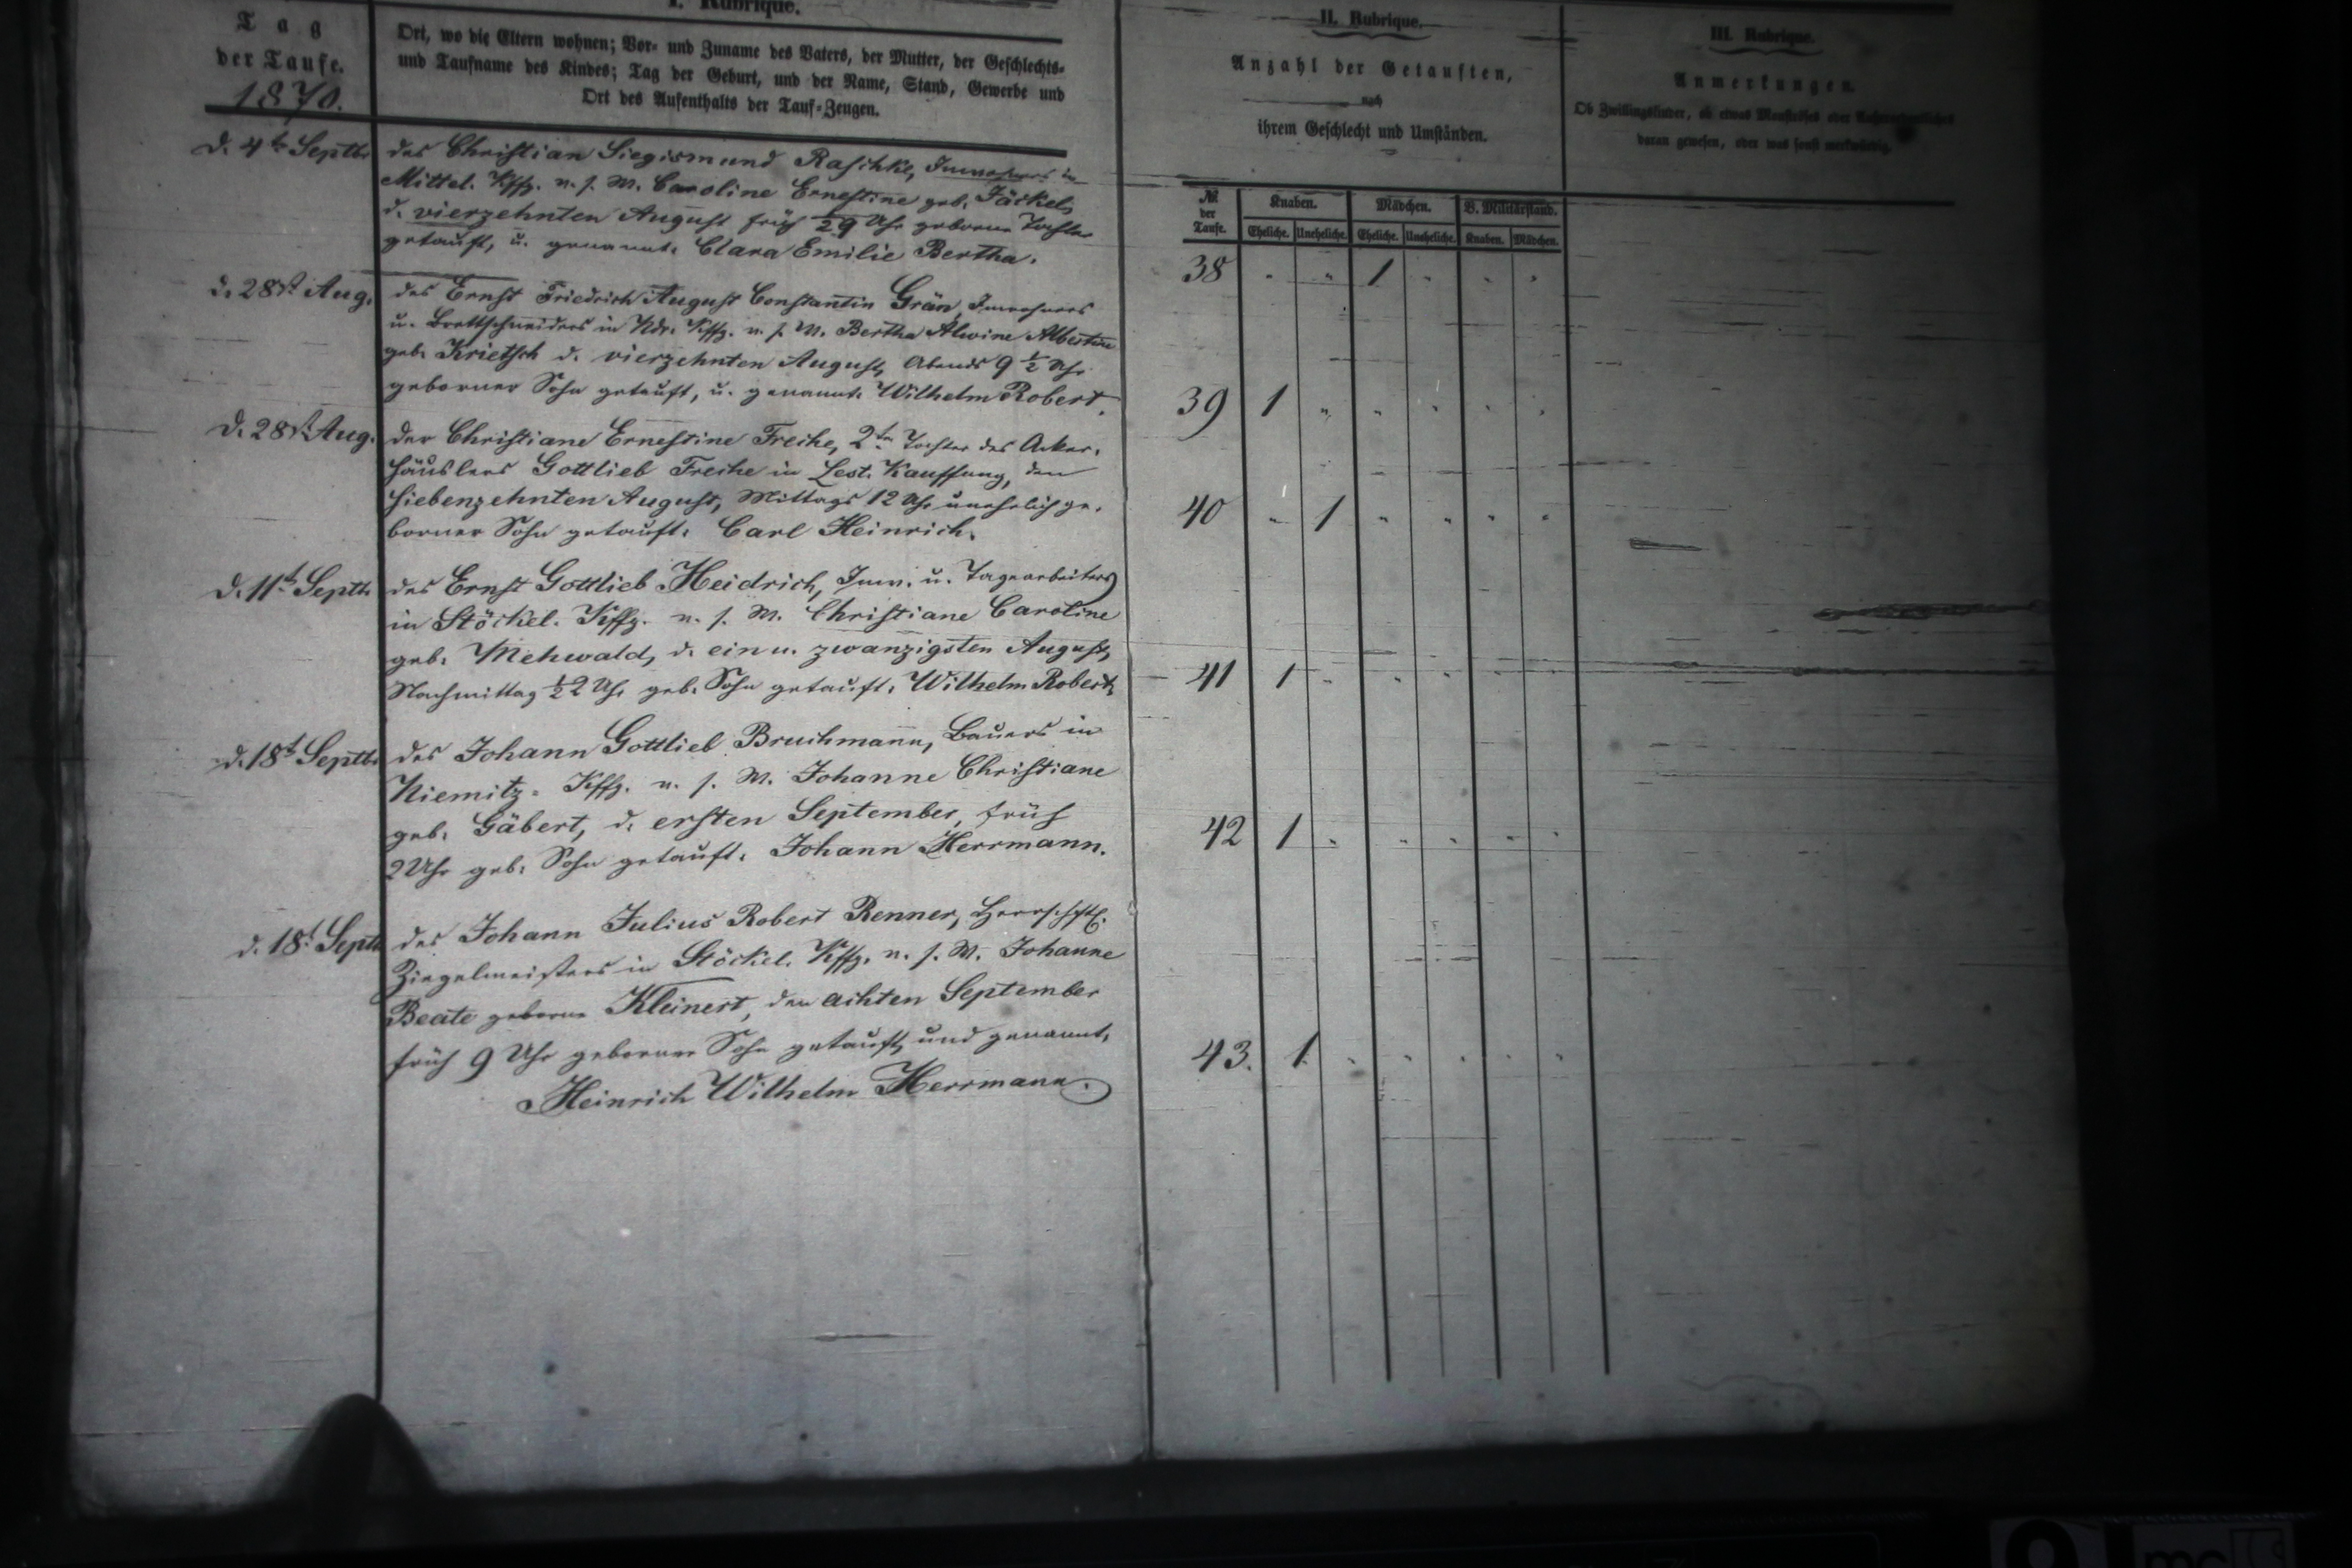 I. Rubrique.
Tag
der Taufe.
1870.
Ort, wo die Eltern wohnen; Vor- und Zuname des Vaters, der Mutter, der Geschlechts-
und Taufname des Kindes; Tag der Geburt, und der Name, Stand, Gewerbe und
Ort des Aufenthalts der Tauf-Zeugen.
II. Rubrique.
Anzahl der Getauften,
nach
ihrem Geschlecht und Umständen.
III. Rubrique.
Anmerkungen.
Ob Zwillingskinder, ob etwas Monströses oder
daran gewesen, oder was sonst merkwürdig.
№ der Taufe. Knaben. Mädchen. V. Militärstand.
Eheliche. Uneheliche. Eheliche. Uneheliche. Knaben. Mädchen.
d. 4t. Septb.
des Christian Siegismund Raschke, Inwohners in
Mittel. Kffg. u. s. W. Caroline Ernestine geb. Jäckel,
d. vierzehnten August früh 1/2 9 Uhr geborne Tochter
getauft, u. genannt: Clara Emilie Bertha.
38 " " 1 " " "
d. 28st. Aug.
des Ernst Friedrich August Constantin Grän, Inwohners
u. Brettschneiders in Ndr. Kffg. u. s. W. Bertha Alwine Albertine
geb. Krietsch d. vierzehnten August, Abends 9 1/2 Uhr
geborner Sohn getauft, u. genannt: Wilhelm Robert.
39 1 " " " " "
d. 28st. Aug.
der Christiane Ernestine Freche, 2ten Tochter des Acker-
häuslers Gottlieb Freche in Lest. Kauffung, den
siebenzehnten August, Mittags 12 Uhr unehelich ge-
borner Sohn getauft: Carl Heinrich.
40 " 1 " " " "
d. 11t. Septb.
des Ernst Gottlieb Heidrich, Inw. u. Tagearbeiters
in Stöckel. Kffg. u. s. W. Christiane Caroline
geb. Mehwald, d. ein u. zwanzigsten August,
Nachmittag 1/2 2 Uhr geb. Sohn getauft: Wilhelm Robert.
41 1 " " " " "
d. 18t. Septb.
des Johann Gottlieb Bruchmann, Bauers in
Niemitz- Kffg. u. s. W. Johanne Christiane
geb. Gäbert, d. ersten September, früh
2 Uhr geb. Sohn getauft: Johann Herrmann.
42 1 " " " " "
d. 18t. Septb.
des Johann Julius Robert Renner, Herrschftl.
Ziegelmeisters in Stöckel. Kffg. u. s. W. Johanne
Beate geborne Kleinert, den achten September
früh 9 Uhr geborner Sohn getauft, und genannt:
Heinrich Wilhelm Herrmann.
43. 1. " " " " "